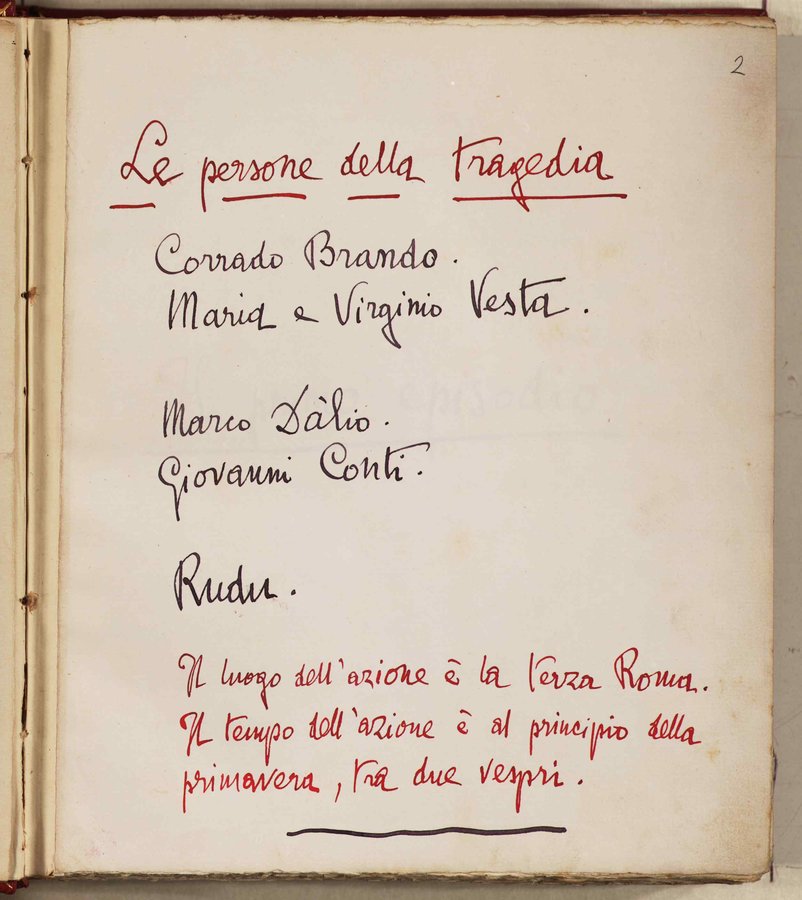 2
Le persone della tragedia
Corrado Brando.
Maria e Virginio Vesta.
Marco Dàlio.
Giovanni Conti.
Rudu.
Il luogo dell'azione è la terza Roma.
Il tempo dell'azione è al principio della
primavera, tra due vespri.